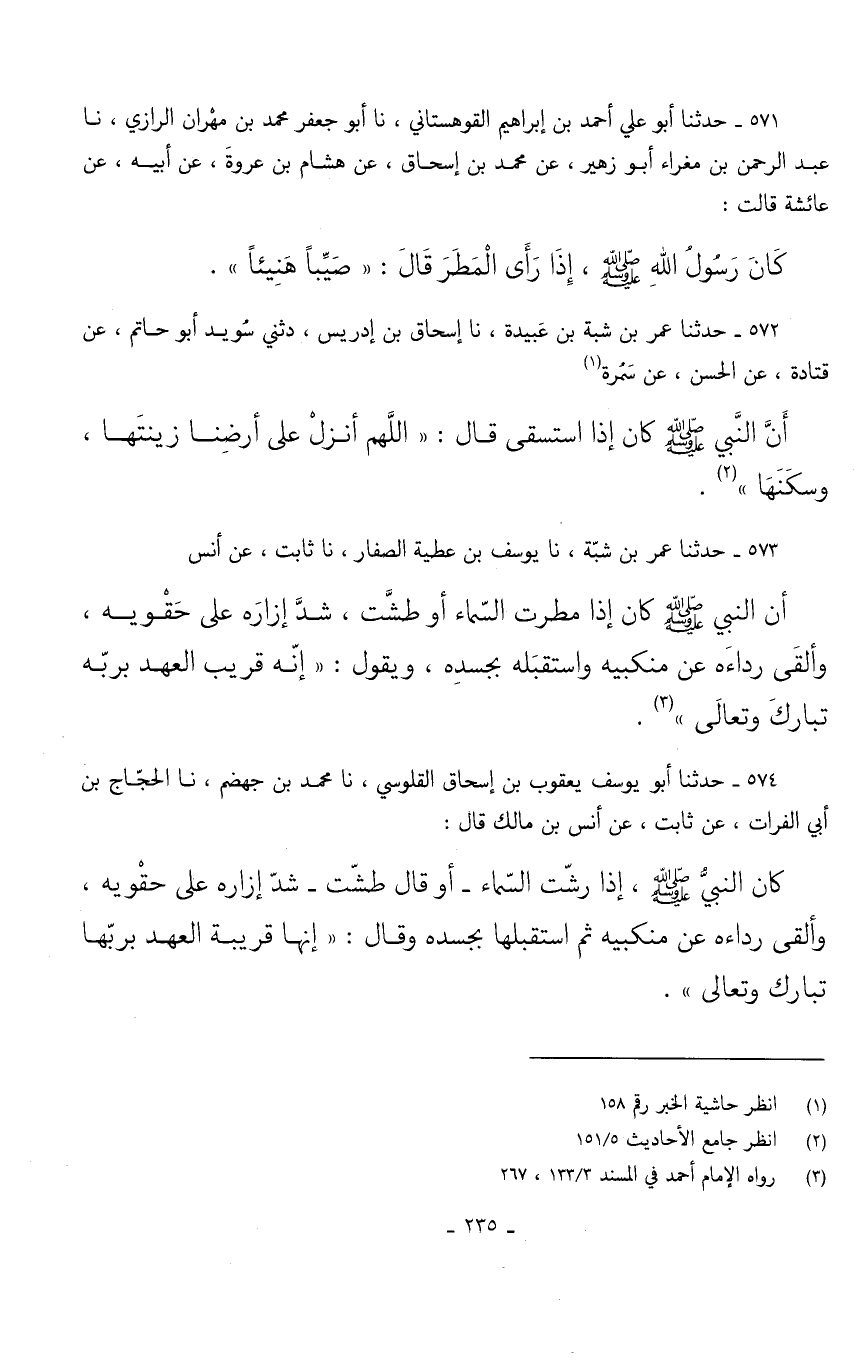 ٥٧١ ـ حدثنا أبو علي أحمد بن إبراهيم القوهستاني ، نا أبو جعفر محمد بن مهْران الرازي ، نـا
عبـد الرحمن بن مغراء أبـو زهير ، عن محمـد بن إسحـاق ، عن هشـام بن عروةَ ، عن أبيـه ، عن
عائشة قالت :
كَانَ رَسُولُ اللهِ ﷺ ، إِذَا رَأَى الْمَطَرَ قَالَ : « صَيِّباً هَنِيئاً » .
٥٧٢ ـ حدثنا عمر بن شبة بن عَبيدة ، نا إسحاق بن إدريس ، دثني سُويـد أبو حـاتم ، عن
قتادة ، عن الحسن ، عن سَمُرة(١)
أَنَّ النَّبي ﷺ كان إذا استسقى قـال : « اللَّهم أنـزلْ على أرضِنـا زينتَهـا ،
وسكَنَهَا »(٢) .
٥٧٣ ـ حدثنا عمر بن شبّة ، نا يوسف بن عطية الصفار ، نا ثابت ، عن أنس
أن النبي ﷺ كان إذا مطرت السّماء أو طشَّت ، شـدَّ إزارَه على حَقْـويـه ،
وألقَى رداءَه عن منكبيه واستقبَله بجسدِه ، ويقول : « إنّـه قريب العهـد بربّـه
تباركَ وتعالَى »(٣) .
٥٧٤ ـ حدثنا أبو يوسف يعقوب بن إسحاق القلوسي ، نا محمـد بن جهضم ، نـا الحجّـاج بن
أبي الفرات ، عن ثابت ، عن أنس بن مالك قال :
كان النبيُّ ﷺ ، إذا رشّت السّماء ـ أو قال طشّت ـ شدّ إزاره على حقْويه ،
وألقى رداءه عن منكبيه ثم استقبلها بجسده وقـال : « إنهـا قريبـة العهـد بربّهـا
تبارك وتعالى » .
(١) انظر حاشية الخبر رقم ١٥٨
(٢) انظر جامع الأحاديث ١٥١/٥
(٣) رواه الإمام أحمد في المسند ١٣٣/٣ ، ٢٦٧
ـ ٢٣٥ ـ